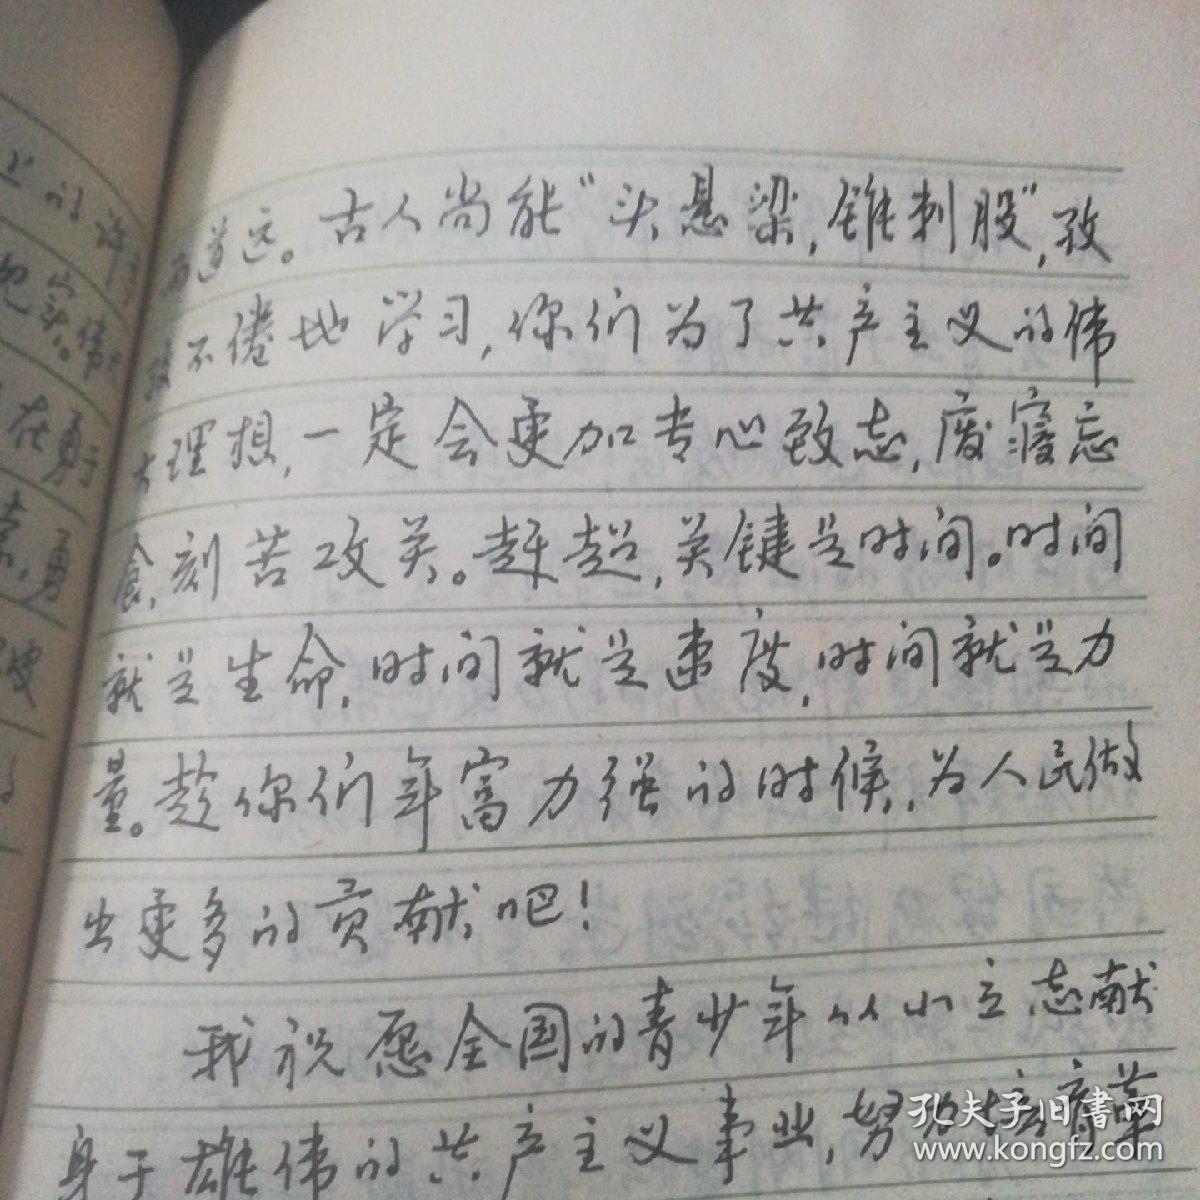 上的许
而道远。古人尚能“头悬梁，锥刺股”，孜
孜不倦地学习，你们为了共产主义的伟
大理想，一定会更加专心致志，废寝忘
食，刻苦攻关。赶超，关键是时间。时间
就是生命，时间就是速度，时间就是力
量。趁你们年富力强的时候，为人民做
出更多的贡献吧！
我祝愿全国的青少年从小立志献
身于雄伟的共产主义事业，努力培育革
孔夫子旧书网
www.kongfz.com